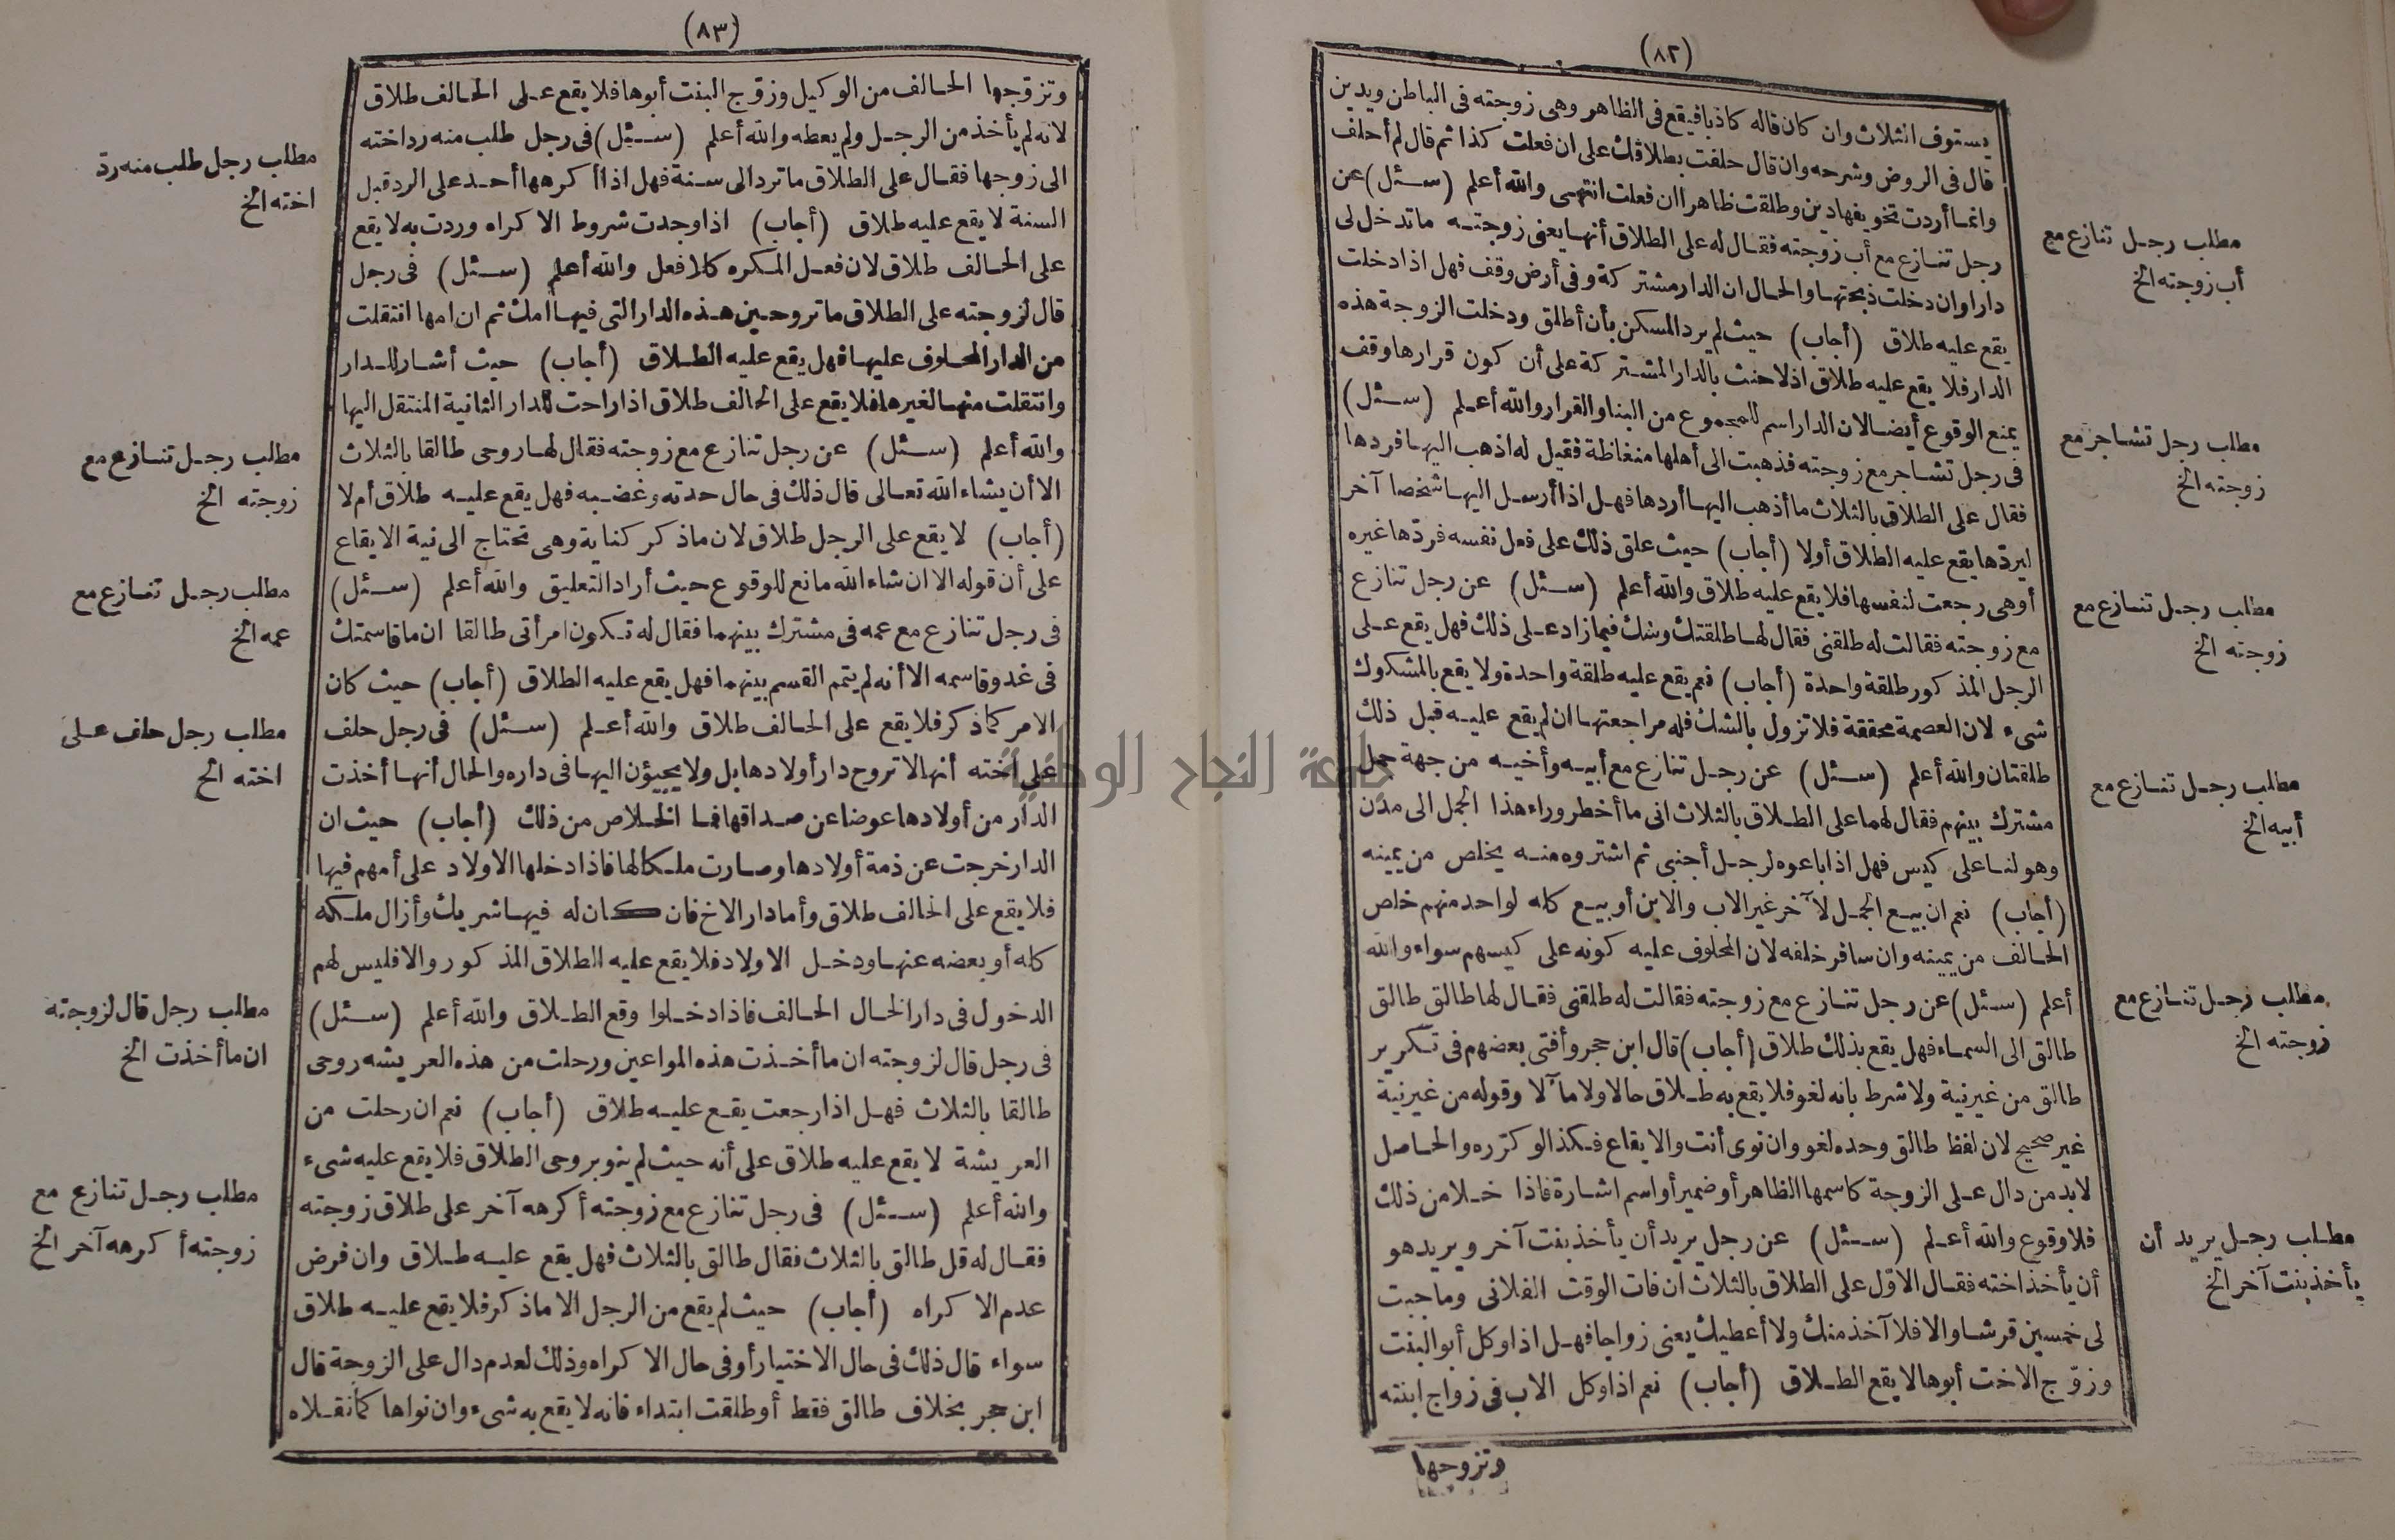 (٨٢)
يستوف الثلاث وان كان قاله كاذبا فيقع فى الظاهر وهى زوجته فى الباطن ويدين
قال فى الروض وشرحه وان قال حلفت بطلاقك على ان فعلت كذا ثم قال لم أحلف
وانما أردت تخويفها دين وطلقت ظاهرا ان فعلت انتهى والله أعلم (سئل) عن
رجل تنازع مع أب زوجته فقال له على الطلاق أنها يعنى زوجته ما تدخل لى
دارا وان دخلت ذبحتها والحال ان الدار مشتركة وفى أرض وقف فهل اذا دخلت
يقع عليه طلاق (أجاب) حيث لم يرد المسكن بأن أطلق ودخلت الزوجة هذه
الدار فلا يقع عليه طلاق اذ لا حنث بالدار المشتركة على أن كون قرارها وقف
يمنع الوقوع أيضا لان الدار اسم للمجموع من البنا والقرار والله أعلم (سئل)
فى رجل تشاجر مع زوجته فذهبت الى أهلها منغاظة فقيل له اذهب اليها فردها
فقال على الطلاق بالثلاث ما أذهب اليها أردها فهل اذا أرسل اليها شخصا آخر
ليردها يقع عليه الطلاق أولا (أجاب) حيث علق ذلك على فعل نفسه فردها غيره
أو هى رجعت لنفسها فلا يقع عليه طلاق والله أعلم (سئل) عن رجل تنازع
مع زوجته فقالت له طلقنى فقال لها طلقتك وشك فيما زاد على ذلك فهل يقع على
الرجل المذكور طلقة واحدة (أجاب) نعم يقع عليه طلقة واحدة ولا يقع بالمشكوك
شىء لان العصمة محققة فلا تزول بالشك فله مراجعتها ان لم يقع عليه قبل ذلك
طلقتان والله أعلم (سئل) عن رجل تنازع مع أبيه وأخيه من جهة جمل
مشترك بينهم فقال لهما على الطلاق بالثلاث انى ما أخطر وراء هذا الجمل الى مدن
وهو لنا على كيس فهل اذا باعوه لرجل أجنبى ثم اشتروه منه يخلص من يمينه
(أجاب) نعم ان بيع الجمل لآخر غير الاب والابن أو بيع كله لواحد منهم خلص
الحالف من يمينه وان سافر خلفه لان المحلوف عليه كونه على كيسهم سواء والله
أعلم (سئل) عن رجل تنازع مع زوجته فقالت له طلقنى فقال لها طالق طالق
طالق الى السماء فهل يقع بذلك طلاق (أجاب) قال ابن حجر وأفتى بعضهم فى تكرير
طالق من غير نية ولا شرط بانه لغو فلا يقع به طلاق حالا ولا مآلا وقوله من غير نية
غير صحيح لان لفظ طالق وحده لغو وان نوى أنت والايقاع فكذا لو كرره والحاصل
لابد من دال على الزوجة كاسمها الظاهر أو ضمير أو اسم اشارة فاذا خلا من ذلك
فلا وقوع والله أعلم (سئل) عن رجل يريد أن يأخذ بنت آخر ويريد هو
أن يأخذ اخته فقال الاول على الطلاق بالثلاث ان فات الوقت الفلانى وما جبت
لى خمسين قرشا والا فلا آخذ منك ولا أعطيك يعنى زواجا فهل اذا وكل أبو البنت
وزوّج الاخت أبوها لا يقع الطلاق (أجاب) نعم اذا وكل الاب فى زواج ابنته
وتزوجها
مطلب رجل تنازع مع
أب زوجته الخ
مطلب رجل تشاجر مع
زوجته الخ
مطلب رجل تنازع مع
زوجته الخ
مطلب رجل تنازع مع
أبيه الخ
مطلب رجل تنازع مع
زوجته الخ
مطلب رجل يريد أن
يأخذ بنت آخر الخ
(٨٣)
وتزوّجها الحالف من الوكيل وزوّج البنت أبوها فلا يقع على الحالف طلاق
لانه لم يأخذ من الرجل ولم يعطه والله أعلم (سئل) فى رجل طلب منه رد اخته
الى زوجها فقال على الطلاق ما ترد الى سنة فهل اذا أكرهها أحد على الرد قبل
السنة لا يقع عليه طلاق (أجاب) اذا وجدت شروط الاكراه وردت به لا يقع
على الحالف طلاق لان فعل المكره كلا فعل والله أعلم (سئل) فى رجل
قال لزوجته على الطلاق ما تروحين هذه الدار التى فيها أمك ثم ان امها انتقلت
من الدار المحلوف عليها فهل يقع عليه الطلاق (أجاب) حيث أشار للدار
وانتقلت منها لغيرها فلا يقع على الحالف طلاق اذا راحت للدار الثانية المنتقل اليها
والله أعلم (سئل) عن رجل تنازع مع زوجته فقال لها روحى طالقا بالثلاث
الا أن يشاء الله تعالى قال ذلك فى حال حدته وغضبه فهل يقع عليه طلاق أم لا
(أجاب) لا يقع على الرجل طلاق لان ما ذكر كناية وهى تحتاج الى نية الايقاع
على أن قوله الا ان شاء الله مانع للوقوع حيث أراد التعليق والله أعلم (سئل)
فى رجل تنازع مع عمه فى مشترك بينهما فقال له تكون امرأتى طالقا ان ما قاسمتك
فى غد وقاسمه الا أنه لم يتمم القسم بينهما فهل يقع عليه الطلاق (أجاب) حيث كان
الامر كما ذكر فلا يقع على الحالف طلاق والله أعلم (سئل) فى رجل حلف
على اخته أنها لا تروح دار أولادها بل ولا يجيؤن اليها فى داره والحال أنها أخذت
الدار من أولادها عوضا عن صداقها فما الخلاص من ذلك (أجاب) حيث ان
الدار خرجت عن ذمة أولادها وصارت ملكا لها فاذا دخلها الاولاد على أمهم فيها
فلا يقع على الحالف طلاق وأما دار الاخ فان كان له فيها شريك وأزال ملكه
كله أو بعضه عنها ودخل الاولاد فلا يقع عليه الطلاق المذكور والا فليس لهم
الدخول فى دار الخال الحالف فاذا دخلوا وقع الطلاق والله أعلم (سئل)
فى رجل قال لزوجته ان ما أخذت هذه المواعين ورحلت من هذه العريشه روحى
طالقا بالثلاث فهل اذا رجعت يقع عليه طلاق (أجاب) نعم ان رحلت من
العريشة لا يقع عليه طلاق على أنه حيث لم ينو بروحى الطلاق فلا يقع عليه شىء
والله أعلم (سئل) فى رجل تنازع مع زوجته أكرهه آخر على طلاق زوجته
فقال له قل طالق بالثلاث فقال طالق بالثلاث فهل يقع عليه طلاق وان فرض
عدم الاكراه (أجاب) حيث لم يقع من الرجل الا ما ذكر فلا يقع عليه طلاق
سواء قال ذلك فى حال الاختيار أو فى حال الاكراه وذلك لعدم دال على الزوجة قال
ابن حجر بخلاف طالق فقط أو طلقت ابتداء فانه لا يقع به شىء وان نواها كما نقلاه
مطلب رجل طلب منه ردّ
اخته الخ
مطلب رجل تنازع مع
زوجته الخ
مطلب رجل تنازع مع
عمه الخ
مطلب رجل حلف على
اخته الخ
مطلب رجل قال لزوجته
ان ما أخذت الخ
مطلب رجل تنازع مع
زوجته أكرهه آخر الخ
جامعة النجاح الوطنية